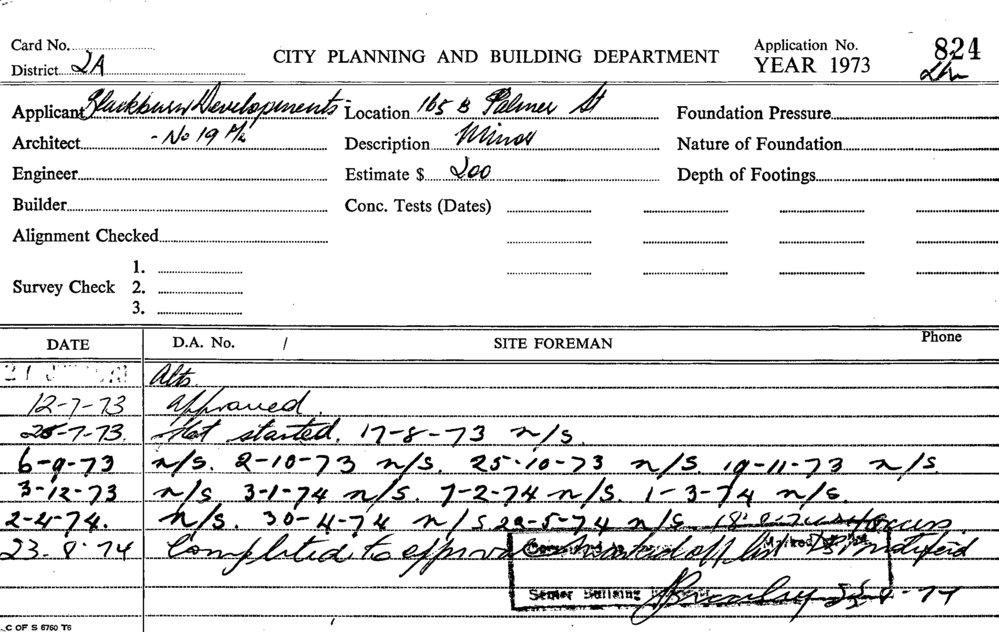 Card No.
CITY PLANNING AND BUILDING DEPARTMENT
Application No. 824
District 2A
YEAR 1973
Applicant Blackburn Developments - Location 165 B Palmer St Foundation Pressure
Architect - No 19 Description Minor Nature of Foundation
Engineer Estimate $ 200 Depth of Footings
Builder Conc. Tests (Dates)
Alignment Checked
1.
Survey Check 2.
3.
DATE D.A. No. / SITE FOREMAN Phone
21 Alts.
12-7-73 approved.
25-7-73. Not started. 17-8-73 n/s.
6-9-73 n/s. 2-10-73 n/s. 25-10-73 n/s. 19-11-73 n/s.
3-12-73 n/s. 3-1-74 n/s. 7-2-74 n/s. 1-3-74 n/s.
2-4-74. n/s. 30-4-74 n/s 29-5-74 n/s
23.8.74 Completed to approval
Senior Building
C OF S 6760 T6